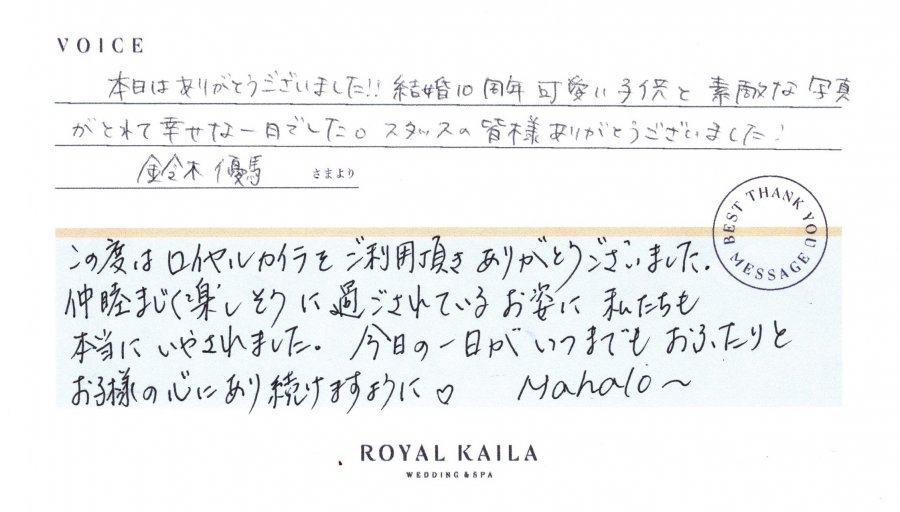 VOICE
本日はありがとうございました!! 結婚10周年 可愛い子供と 素敵な写真
がとれて幸せな一日でした。スタッフの皆様ありがとうございました!
鈴木優馬 さまより
BEST THANK YOU MESSAGE
この度はロイヤルカイラをご利用頂きありがとうございました。
仲睦まじく楽しそうに過ごされているお姿に私たちも
本当にいやされました。今日の一日がいつまでもおふたりと
お子様の心にあり続けますように♡ Mahalo~
ROYAL KAILA
WEDDING & SPA